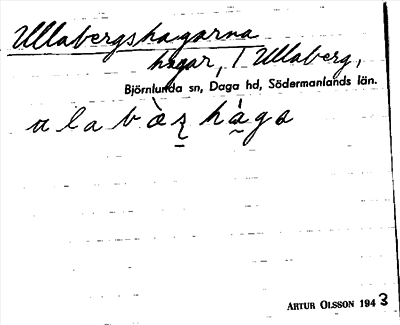 Ullabergshagarna
hagar, i Ullaberg,
Björnlunda sn, Daga hd, Södermanlands län.
u l a b ä̀ z̠ h à̠ g a
ARTUR OLSSON 1943